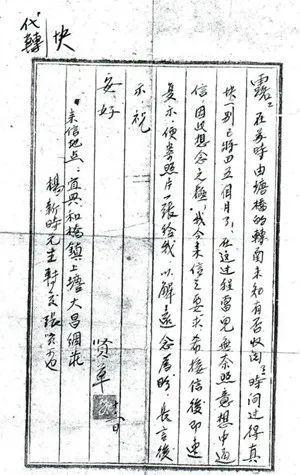 代轉
快
露：在荠時由塘橋的轉南未知有否收閱？時間过得真
快一别已将四五個月了，在这过程當兒無奈照意想中通
信，因此想念之極，我今来信之要求，希接信後即速
复示，便寄照片一張给我，以解遠念為盼，長言後
示祝
安好
賢卓
十八日
来信地点：宜興和橋鎮上塘大昌綢莊
楊新時先生轉交張